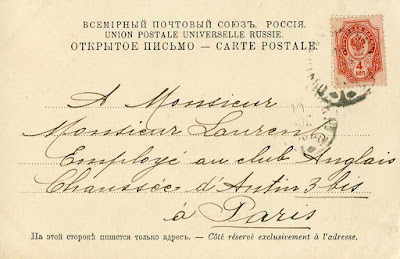 ВСЕМІРНЫЙ ПОЧТОВЫЙ СОЮЗЪ. РОССІЯ.
UNION POSTALE UNIVERSELLE RUSSIE.
ОТКРЫТОЕ ПИСЬМО — CARTE POSTALE.
4
КОП
A Monsieur
Monsieur Laurent
Employé au club Anglais
Chaussée d'Antin 3 bis
à Paris
На этой сторонѣ пишется только адресъ. — Côté réservé exclusivement à l'adresse.